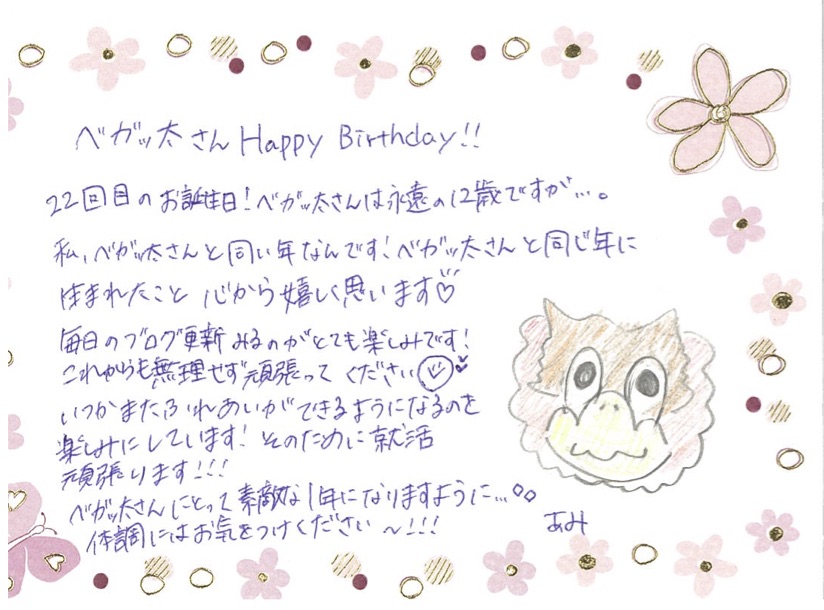 ベガッ太さん Happy Birthday!!
22回目のお誕生日!ベガッ太さんは永遠の12歳ですが…。
私、ベガッ太さんと同い年なんです!ベガッ太さんと同じ年に
生まれたこと 心から嬉しく思います♡
毎日のブログ更新みるのがとても楽しみです!
これからも無理せず頑張ってください
いつかまたふれあいができるようになるのを
楽しみにしています!そのために就活
頑張ります!!!
ベガッ太さんにとって素敵な1年になりますように…
体調にはお気をつけください〜!!!
あみ